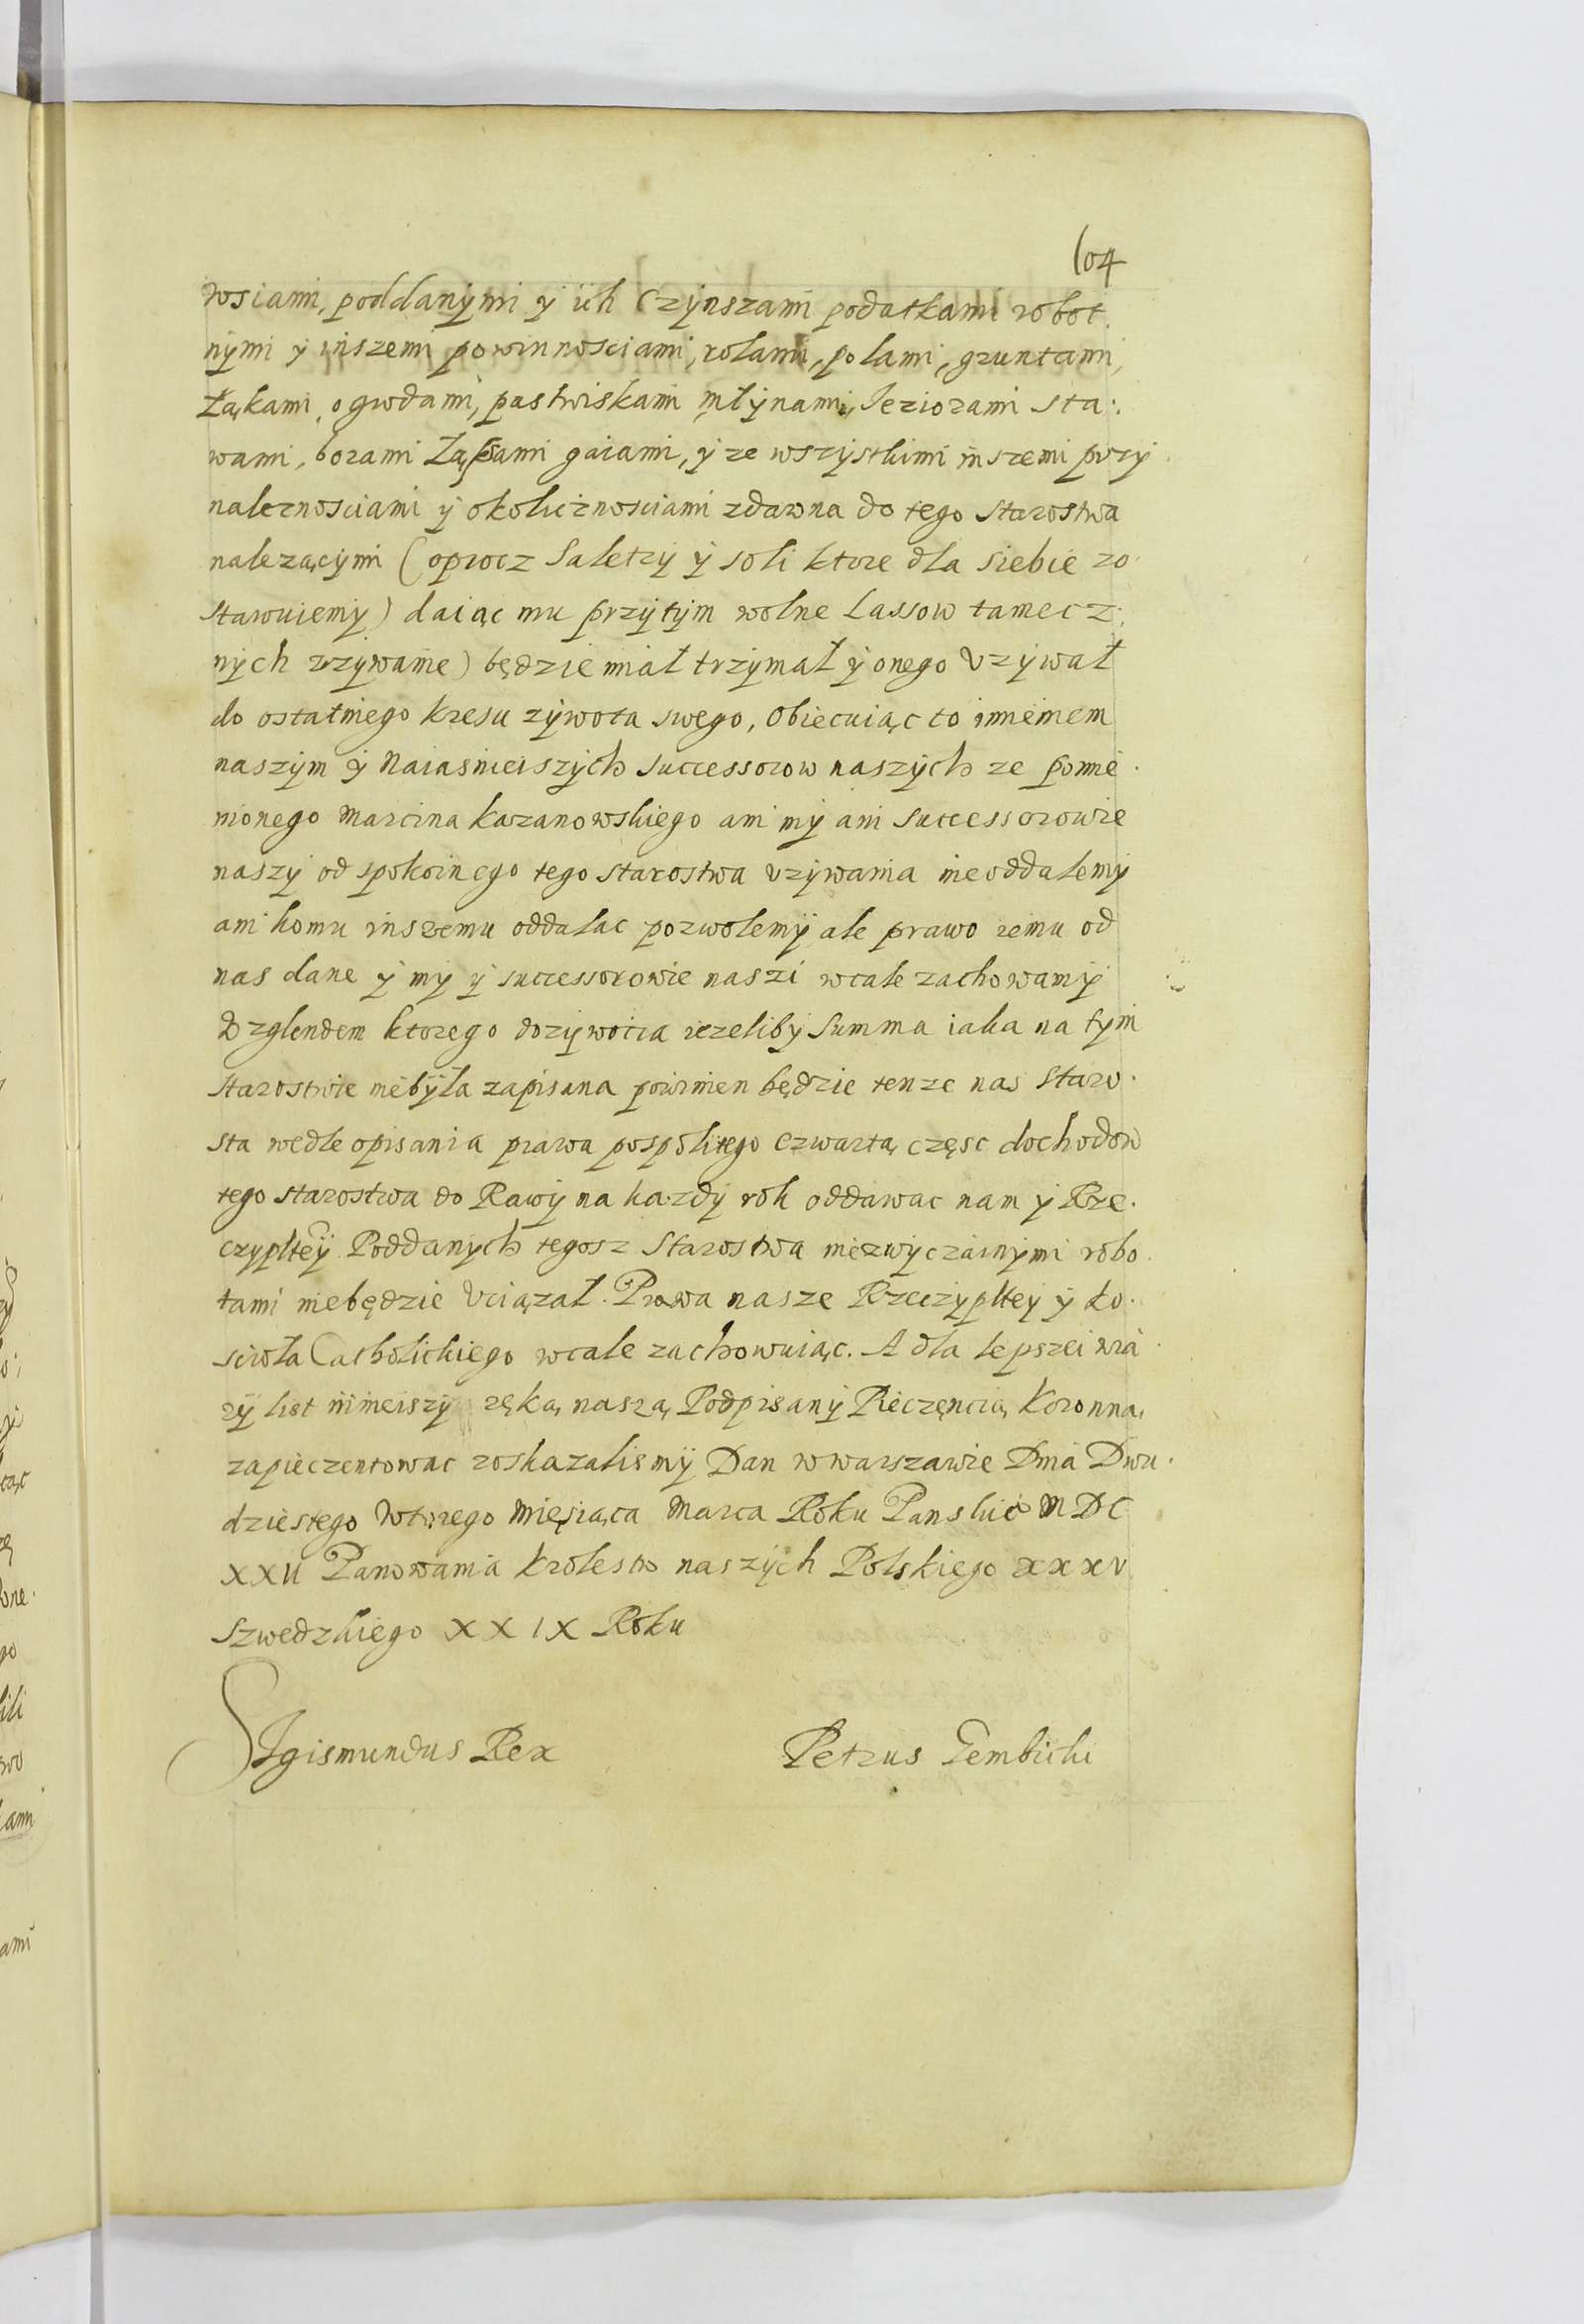 104
wsiami, poddanymi y ich Czynszami podatkami robot.
nymi y inszemi powinnosciami, rolami, polami, gruntami,
Łąkami, ogrodami, pastwiskami młynami, Jeziorami sta:
wami, borami gaiami, y ze wszystkimi inszemi przy
naleznosciami y okolicznosciami zdawna do tego starostwa
nalezącymi (oprocz Saletry y soli ktore dla siebie zo
stawuiemy) daiąc mu przytym wolne Lassow tamecz:
nych vzywanie) będzie miał trzymał y onego Vzywał
do ostatniego kresu zywota swego, Obiecuiąc to imieniem
naszym y Naiasnieiszych Successorow naszych ze pomie
nionego Marcina kazanowskiego ani my ani Successorowie
naszy od spokoinego tego starostwa vzywania nieoddalemy
ani komu inszemu oddalac pozwolemy ale prawo iemu od
nas dane y my y successorowie naszi wcale zachowamy
Wzglendem ktorego dozywocia iezeliby Summa iaka na tym
starostwie niebyla zapisana powinien będzie tenze nas staro.
sta wedle opisania prawa pospolitego czwartą częsc dochodow
tego starostwa do Rawy na kazdy rok oddawac nam y Rze.
czypltey Poddanych tegosz Starostwa niezwyczainymi robo
tami niebędzie Vciązał. Prawa nasze Rzeczypltey y ko.
sciola Catholickiego wcale zachowuiąc. A dla lepszei wia
ry list ninieiszy ręką naszą Podpisany Pieczęncią koronną
zapieczentowac roskazalismy Dan w warszawie Dnia Dwu.
dziestego Wtorego Miesiąca Marca Roku Panskie° MDC
XXII Panowania krolestw naszych Polskiego xxxv
Szwedzkiego XXIX Roku
SIgismundus Rex Petrus Gembicki